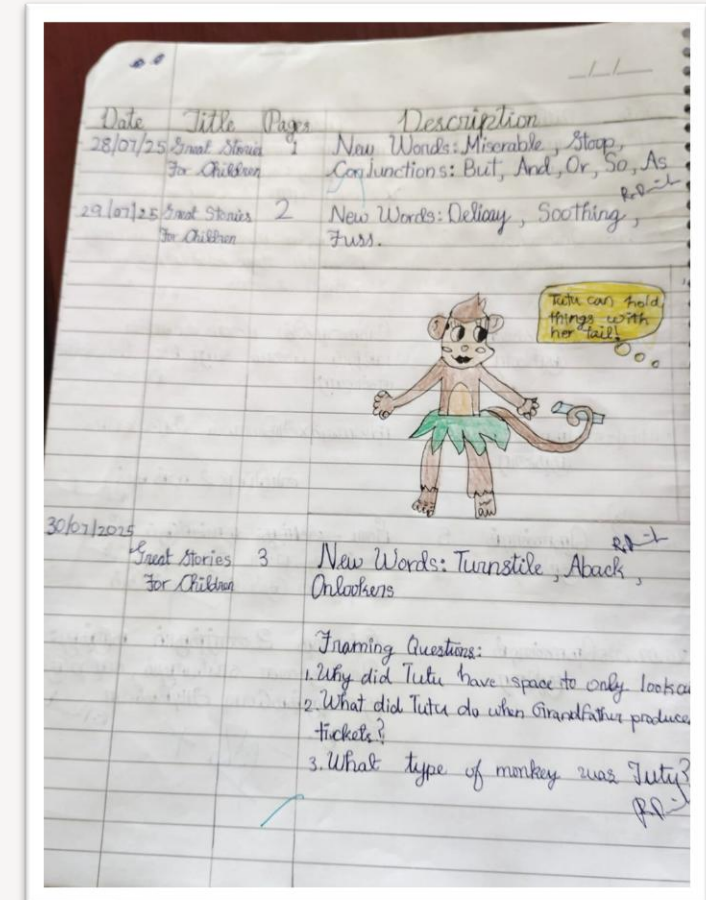 _/_/_
Date Title Pages Description
28/07/25 Great Stories 1 New Words: Miserable, Stoop,
For Children Conjunctions: But, And, Or, So, As
29/07/25 Great Stories 2 New Words: Delicay, Soothing,
For Children Fuss.
Tutu can hold
things with
her tail!
30/07/2025
Great Stories 3 New Words: Turnstile, Aback,
For Children Onlookers
Framing Questions:
1. Why did Tutu have space to only
2. What did Tutu do when Grandfather produce
tickets?
3. What type of monkey was Tuty?